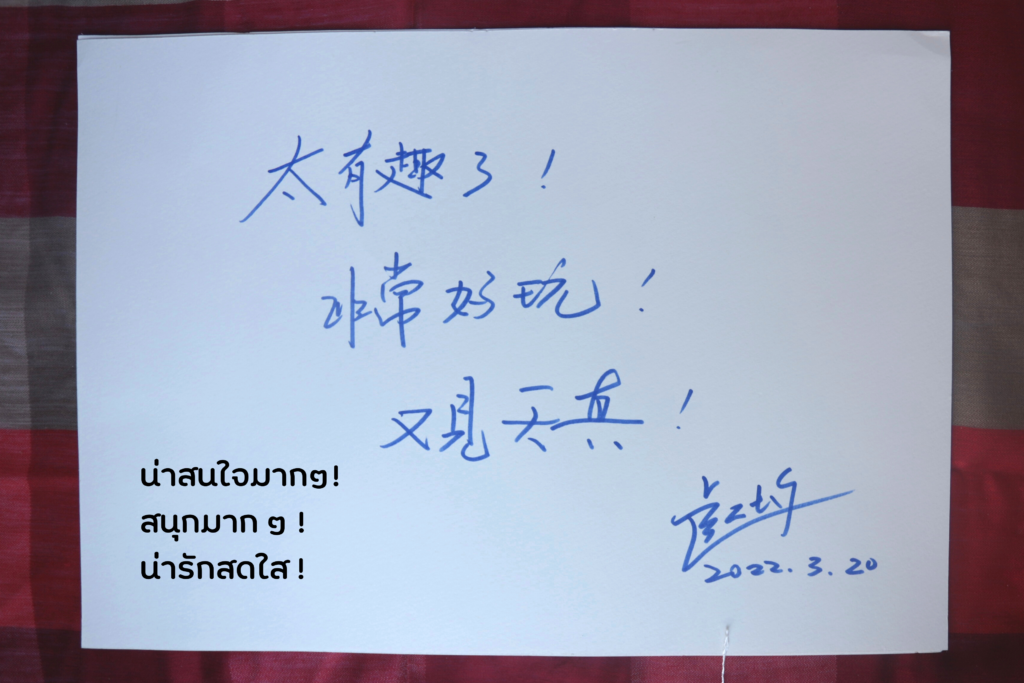 太有趣了!
非常好玩!
又見天真!
น่าสนใจมากๆ!
สนุกมาก ๆ !
น่ารักสดใส !
2022.3.20